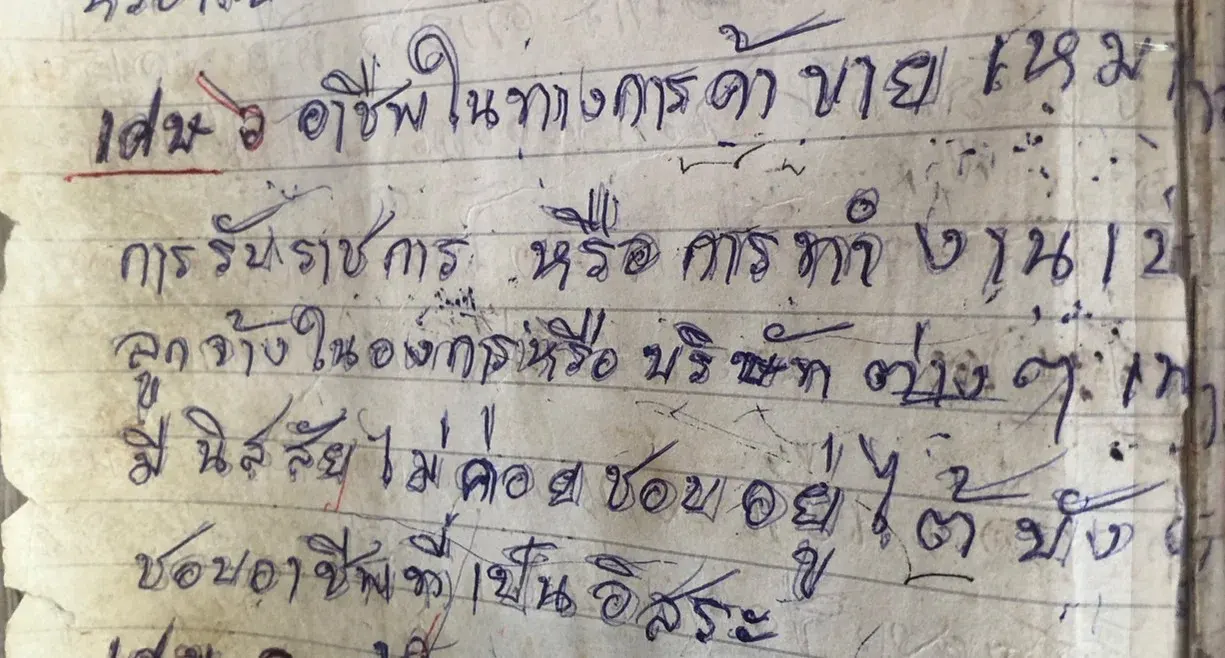 เศษ ๖ อาชีพในทางการค้าขาย
การรับราชการ หรือการทำงาน
ลูกจ้างในองค์การหรือบริษัท ต่างๆ
มีนิสสัยไม่ค่อยชอบอยู่ใต้
ชอบอาชีพที่เป็นอิสระ